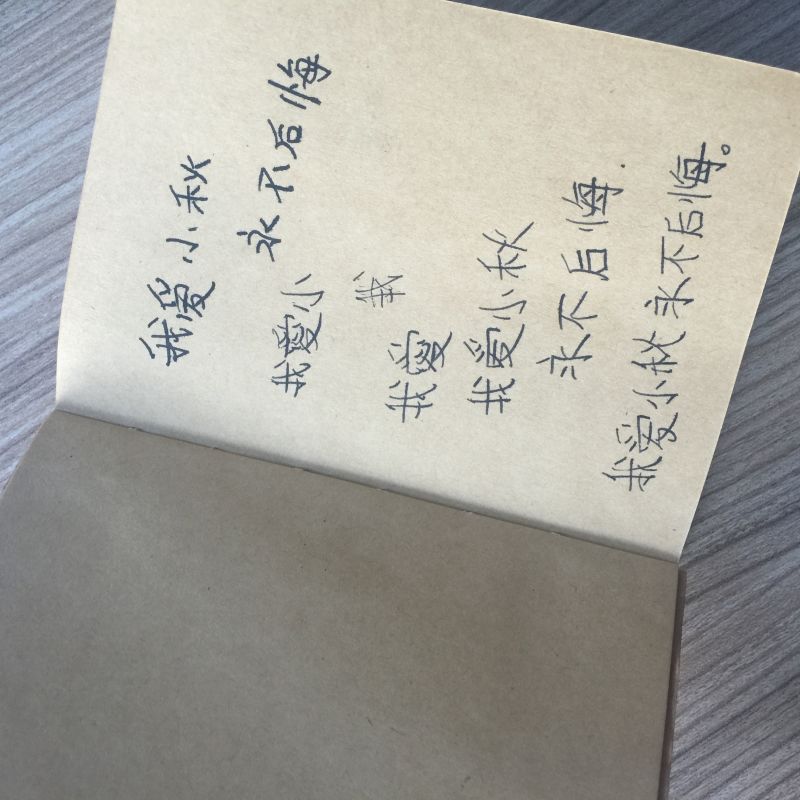 我爱小秋
永不后悔
我爱小
我
我爱
我爱小秋
永不后悔.
我爱小秋永不后悔。